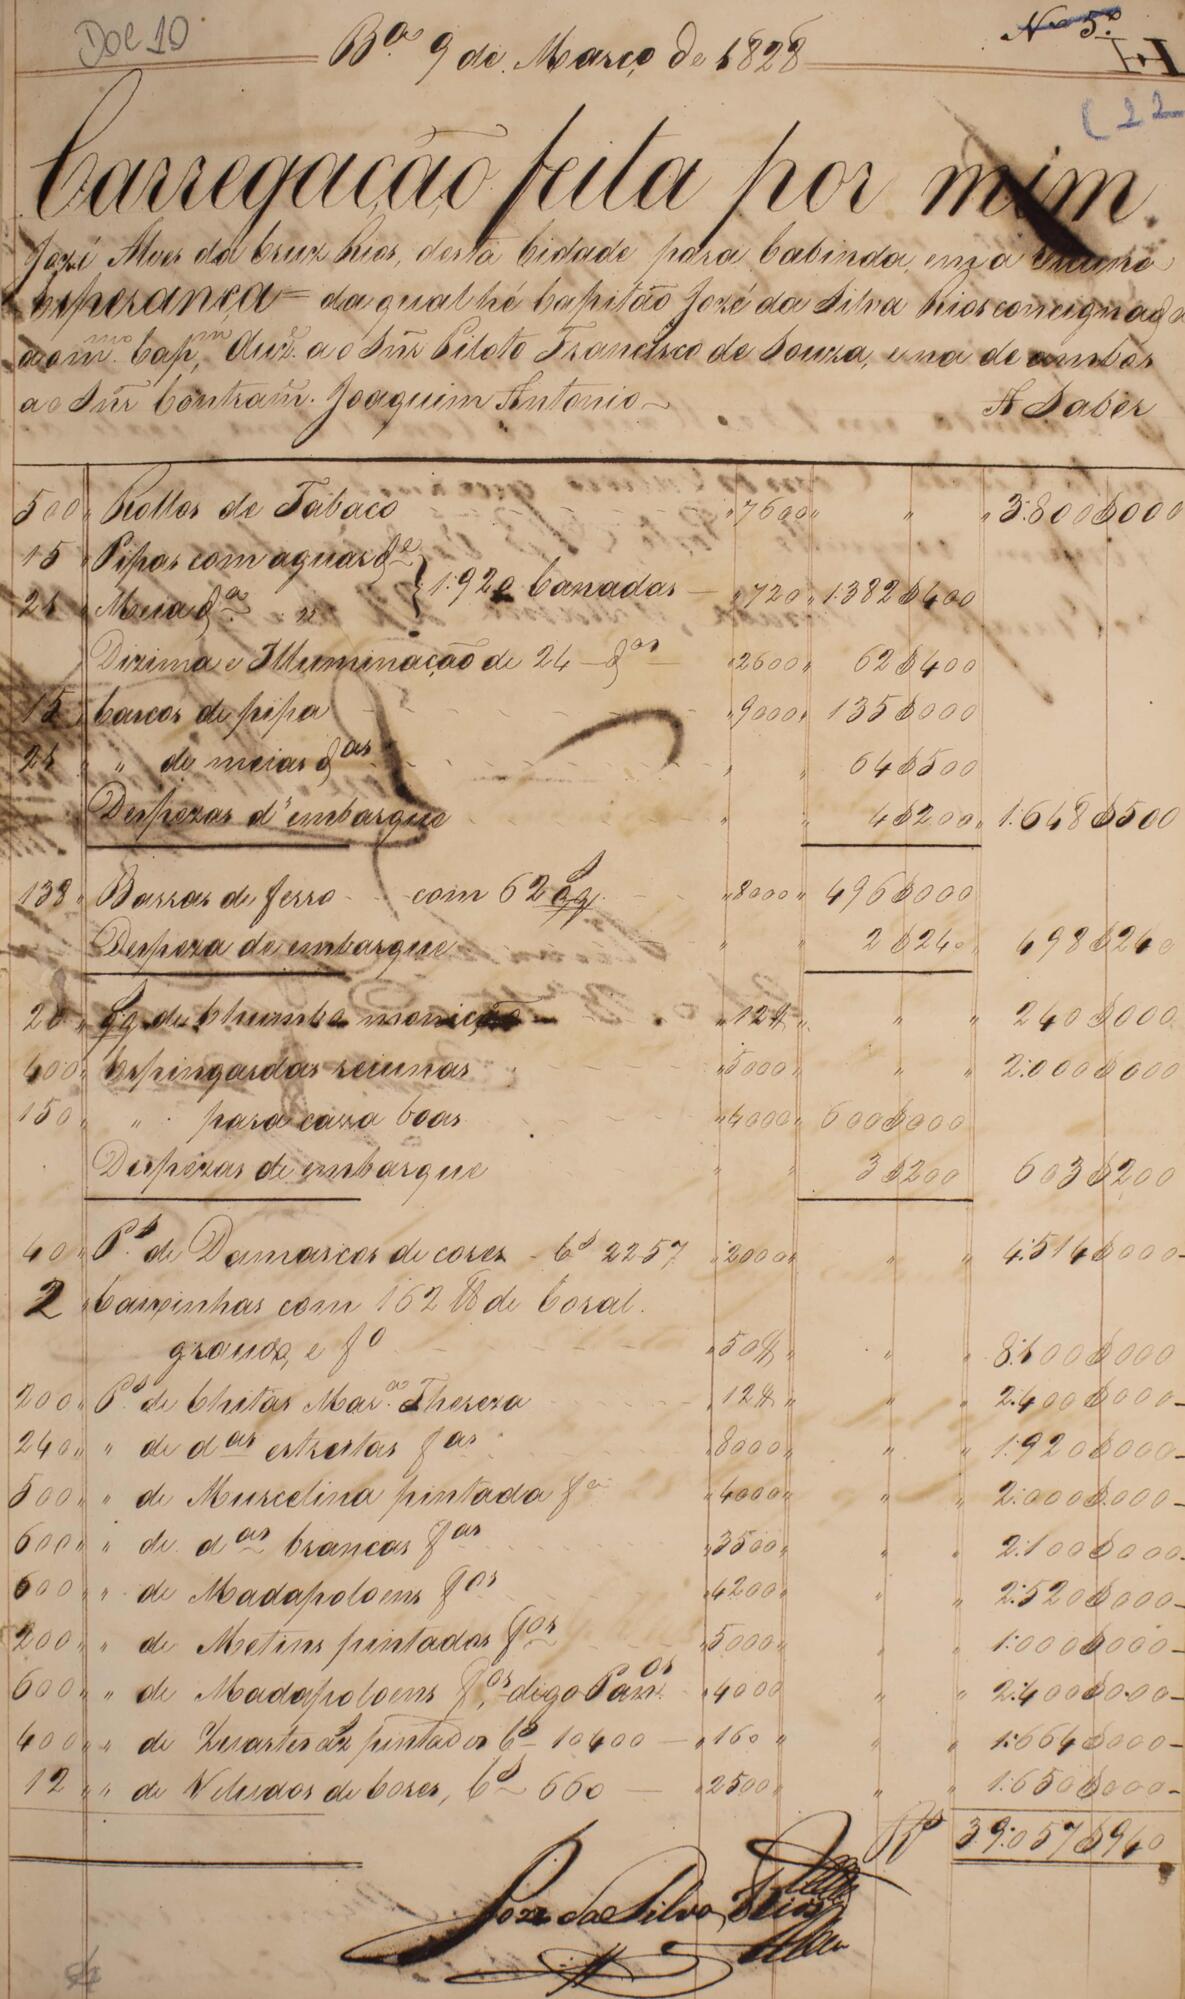 Doc 10
Bª 9 de Março de 1828
Nº 5.º
(22
Carregação feita por mim
Jozé Alves da Cruz Rios, desta Cidade para Cabinda, em a
Esperança = da qual hé Capitão Jozé da Silva Rios consignada
ao mmo. Capm, Auz.e ao Snr Piloto Francisco de Souza, e na de ambos
ao Snr Contram. Joaquim Antonio
A Saber
500 " Rollos de Tabaco " 7600 " " " 3:800$000
15 Pipas com aguasde
24 " Meia da " } 1:920 Canadas " 720 " 1382$400
Dizima e Illuminação de 24 das " 2600 " 62$400
15 " Cascos de pipa " 9000 " 135$000
24 " " de meias das " " 64$500
Despezas d'embarque " " 4$200 " 1:648$500
138 " Barras de ferro com 62 qq " 8000 " 496$000
Despeza de embarque " " 2$240 498$240
20 " qq de Chumbo monição " 12$ " " " 240$000
400 " Espingardas reiunas " 5000 " " " 2:000$000
150 " para caza boas " 4000 " 600$000
Despezas de embarque " " 3$200 603$200
40 " Ps de Damascos de cores Cs 2257 " 2000 " " " 4:514$000
2 " Caixinhas com 162 lb de Coral
grande, e fo " 50$ " " " 8:100$000
200 " Ps de Chitas Mar.as Thereza " 12$ " " " 2:400$000
240 " " de das estreitas fas " 8000 " " " 1:920$000
500 " " de Murcelina pintada fa " 4000 " " " 2:000$000
600 " " de das brancas fas " 3500 " " " 2:100$000
600 " " de Madapoloens fos " 4200 " " " 2:520$000
200 " " de Metins pintados fos " 5000 " " " 1:000$000
600 " " de Madapoloens fos, digo Panos " 4000 " " 2:400$000
400 " " de Zuartes pintados Cs 10400 " 160 " " " 1:664$000
12 " " de Veludos de Cores, Cs 660 " 2500 " " " 1:650$000
Rs 39:057$940
Joze da Silva Rios